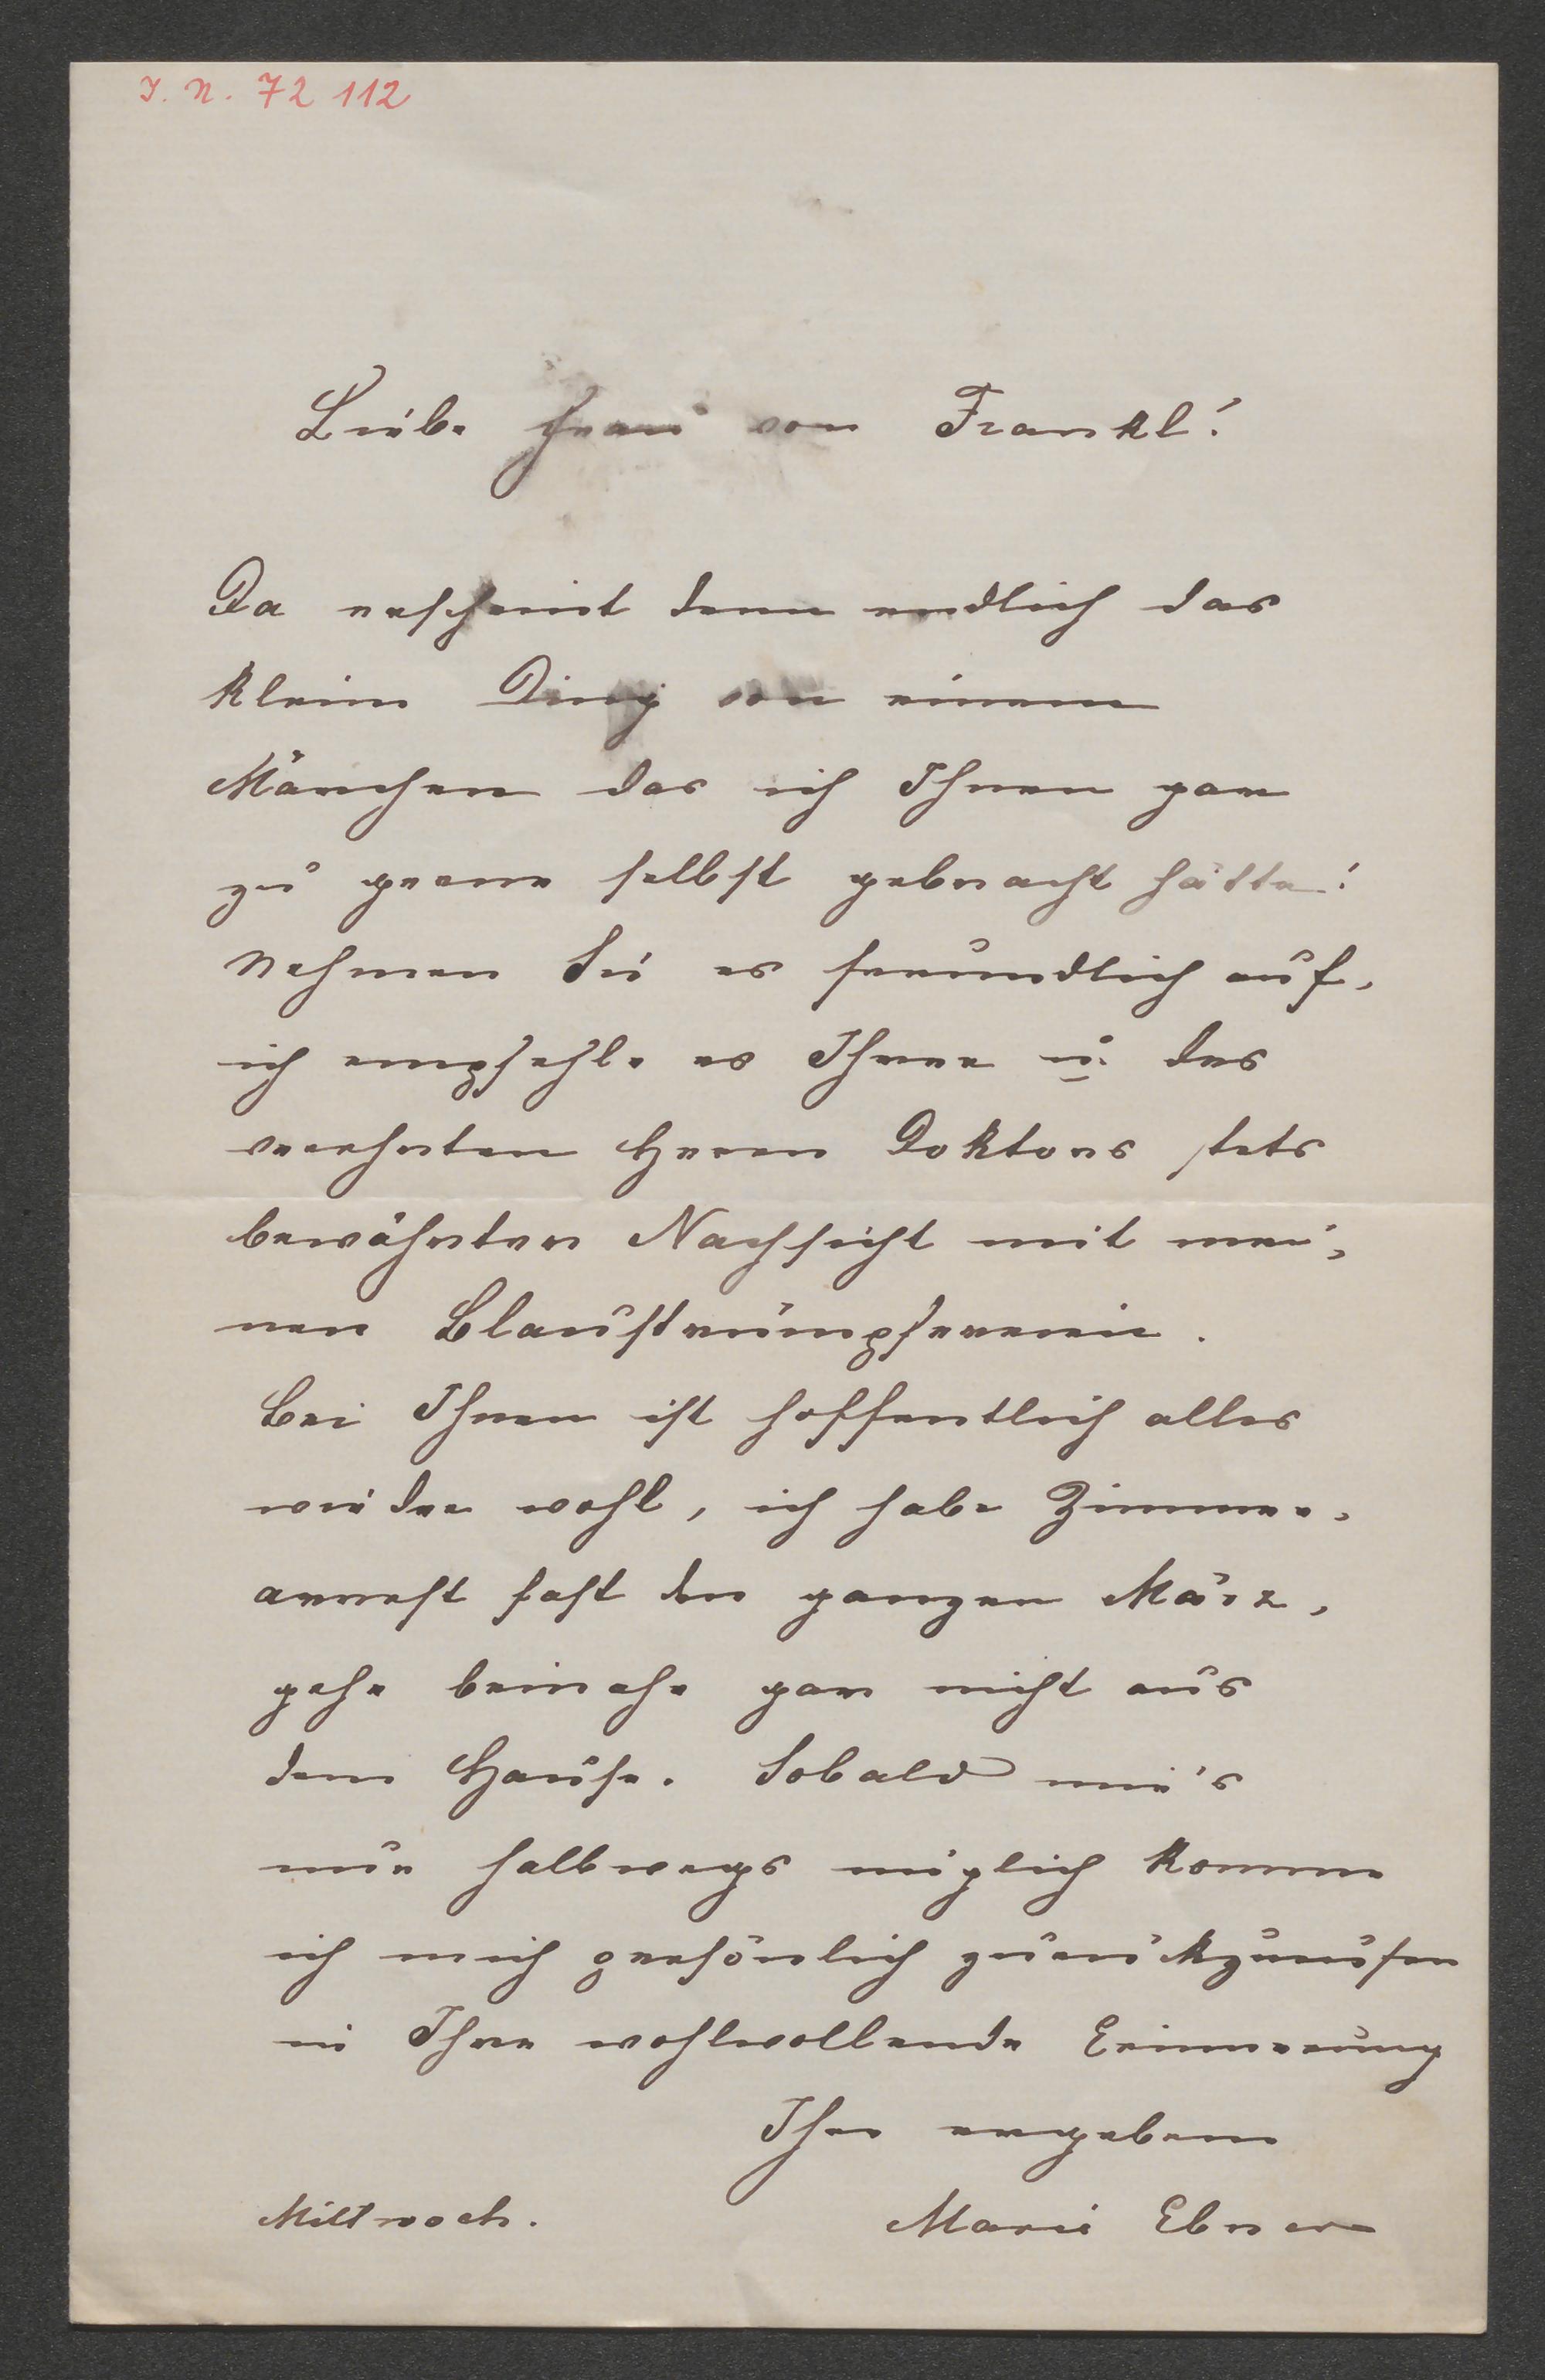 J. N. 72 112
Liebe Frau von Frankl!
Da erscheint denn endlich das
kleine Ding von einem
Märchen das ich Ihnen gar
zu gerne selbst gebracht hätte!
Nehmen Sie es freundlich auf,
ich empfehle es Ihrer u. des
verehrten Herrn Doktors stets
bewährten Nachsicht mit mei-
ner Blaustrümpferei.
Bei Ihnen ist hoffentlich alles
wieder wohl, ich habe Zimmer-
arrest fast den ganzen März,
gehe beinahe gar nicht aus
dem Hause. Sobald mir's
nur halbwegs möglich komme
ich mich persönlich zurückzurufen
in Ihre wohlwollende Erinnerung
Ihre ergebene
Mittwoch. Marie Ebner